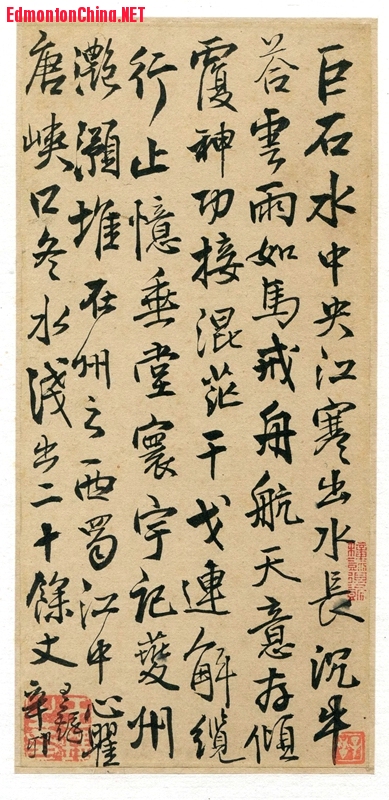 EdmontonChina.NET
巨石水中央江寒出水長沉牛
荅雲雨如馬戒舟航天意存傾
覆神功接混茫干戈連解纜
行止憶垂堂寰宇記夔州
灧澦堆在州之西蜀江中心瞿
唐峽口冬水淺出二十餘丈
辛卯